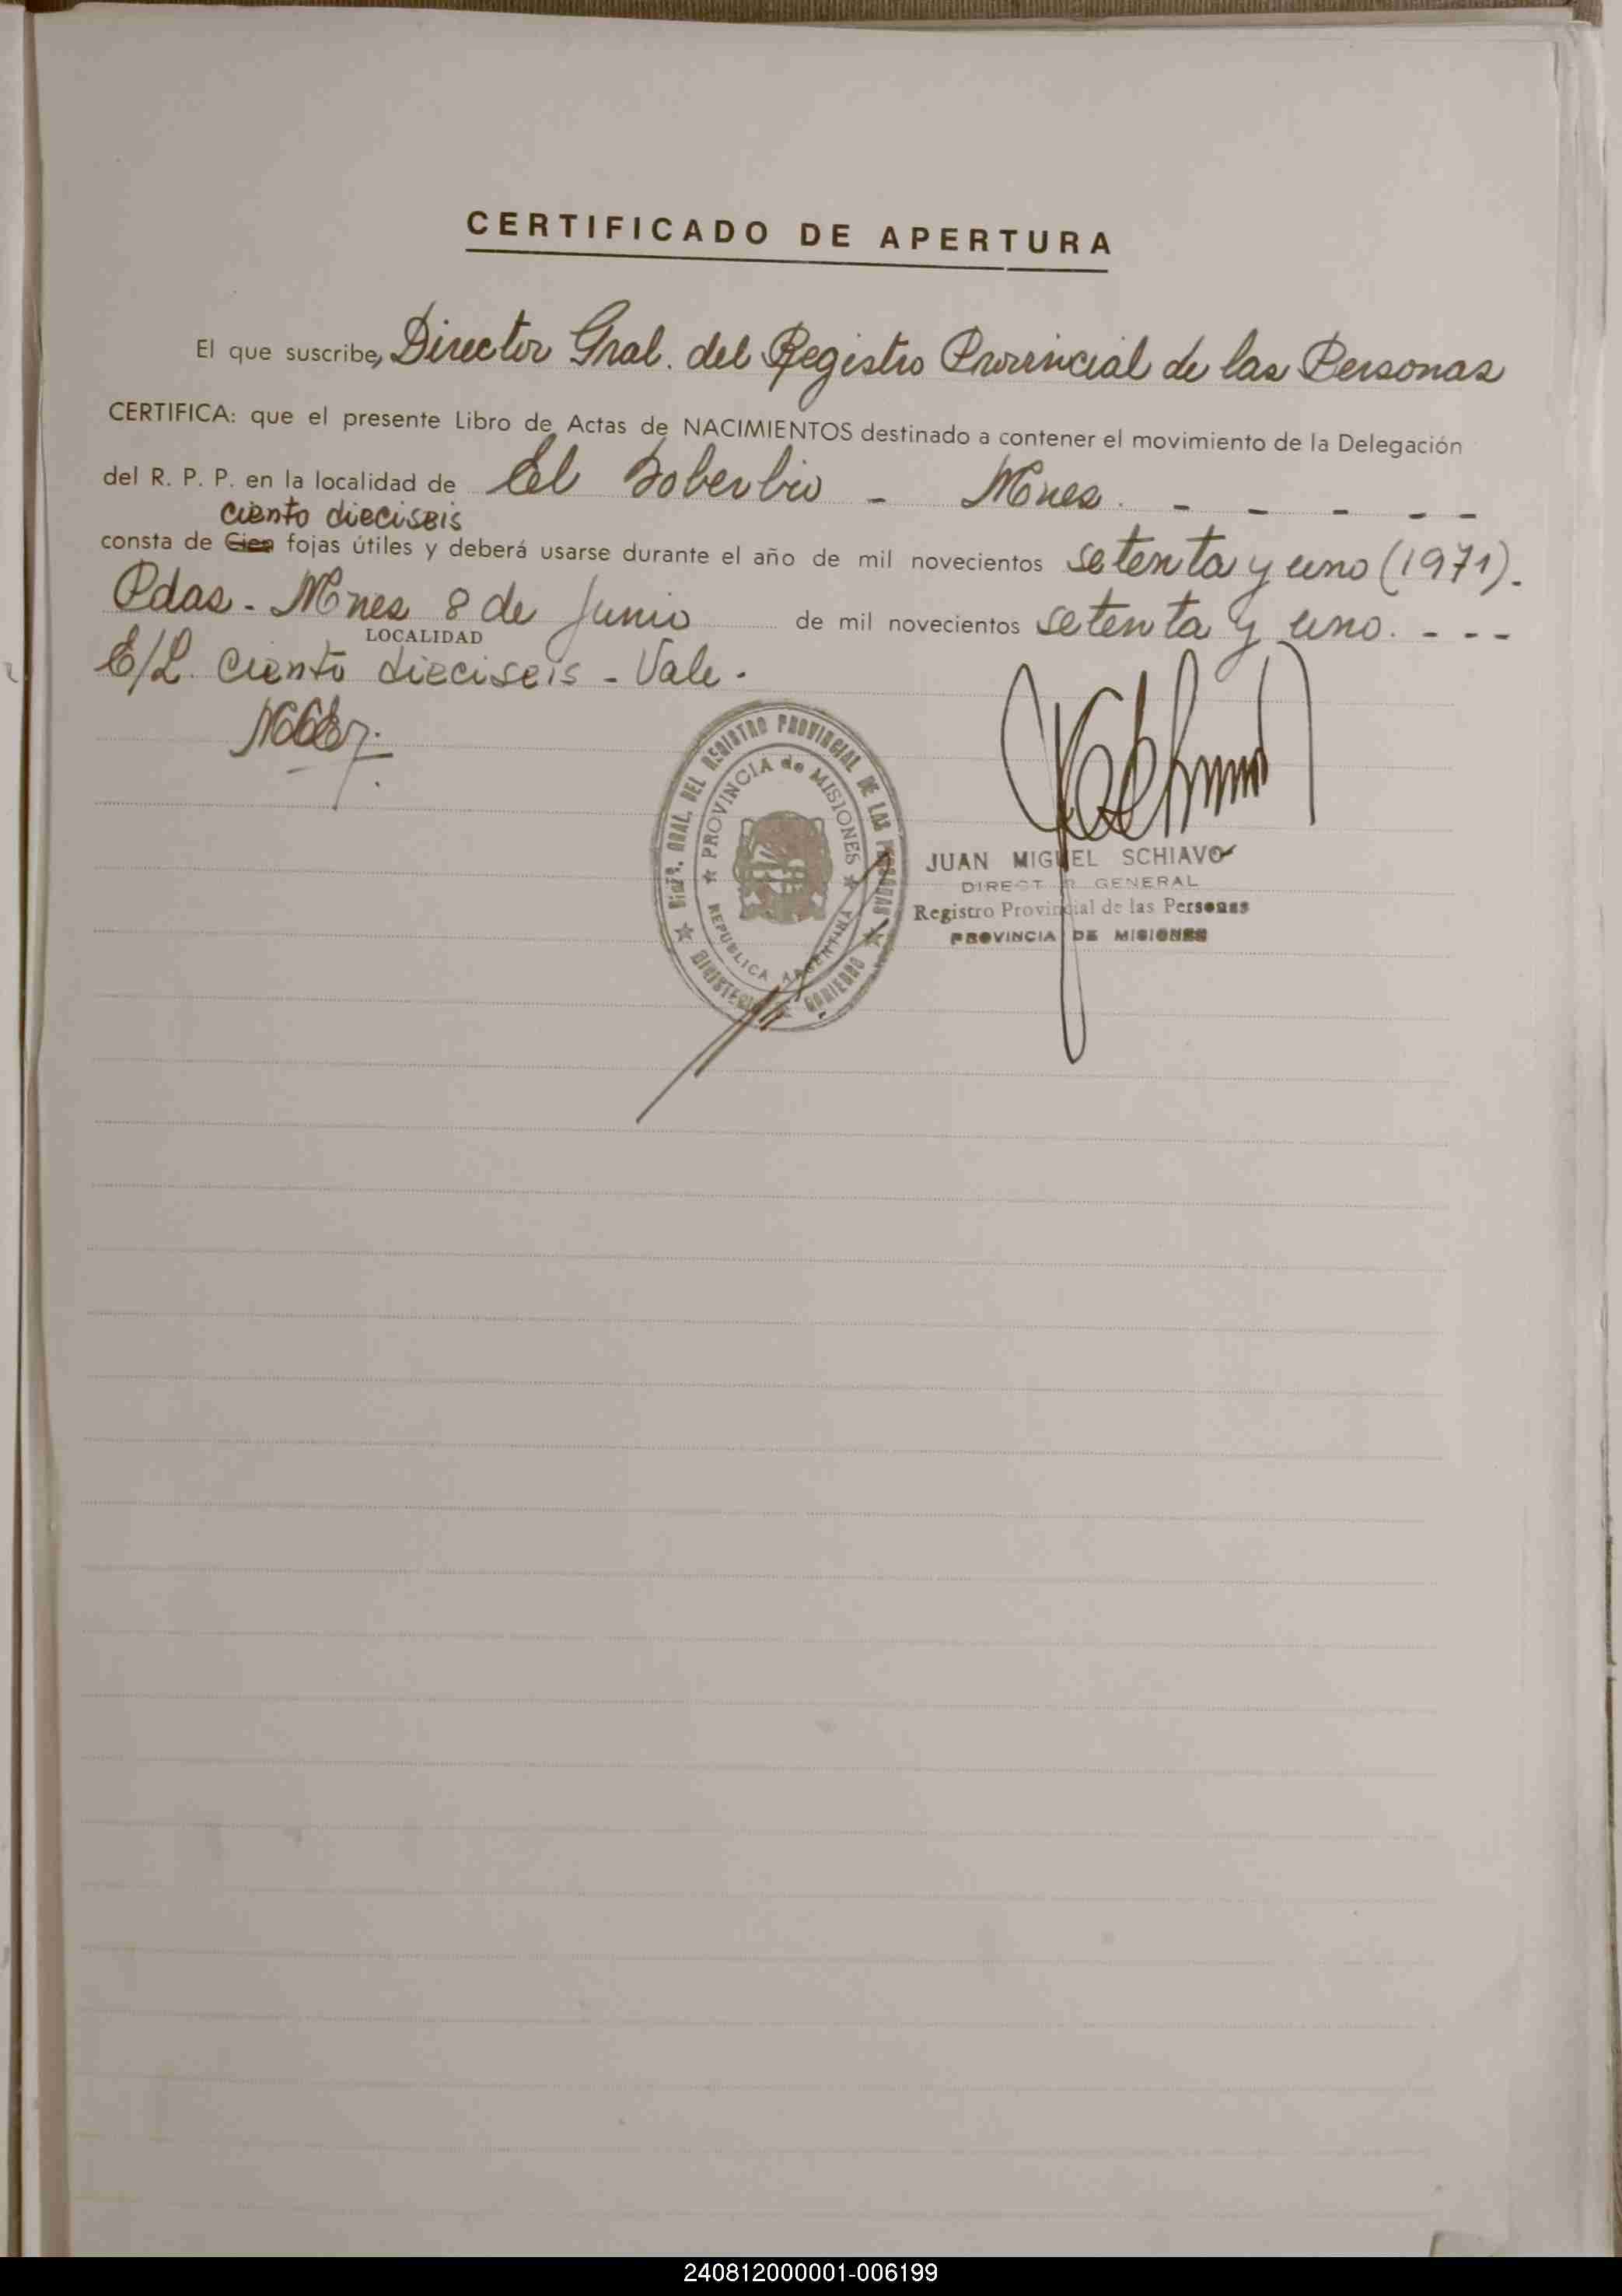 CERTIFICADO DE APERTURA
El que suscribe, Director Gral. del Registro Provincial de las Personas
CERTIFICA: que el presente Libro de Actas de NACIMIENTOS destinado a contener el movimiento de la Delegación
del R. P. P. en la localidad de El Soberbio - Mnes. - - - - -
ciento dieciseis
consta de Cien fojas útiles y deberá usarse durante el año de mil novecientos setenta y uno (1971).
Pdas. - Mnes 8 de Junio de mil novecientos setenta y uno. - - -
LOCALIDAD
E/L. ciento dieciseis - Vale.
DIREC. GRAL. DEL REGISTRO PROVINCIAL DE LAS PERSONAS
PROVINCIA de MISIONES
REPUBLICA ARGENTINA
MINISTERIO GOBIERNO
JUAN MIGUEL SCHIAVO
DIRECTOR GENERAL
Registro Provincial de las Personas
PROVINCIA DE MISIONES
240812000001-006199